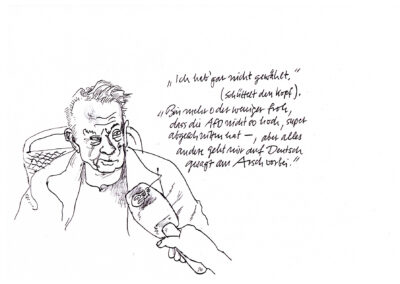 „Ich hab' gar nicht gewählt."
(schüttelt den Kopf).
„Bin mehr oder weniger froh,
dass die AfD nicht so hoch, super
abgeschnitten hat –, aber alles
andere geht mir auf Deutsch
gesagt am Arsch vorbei."